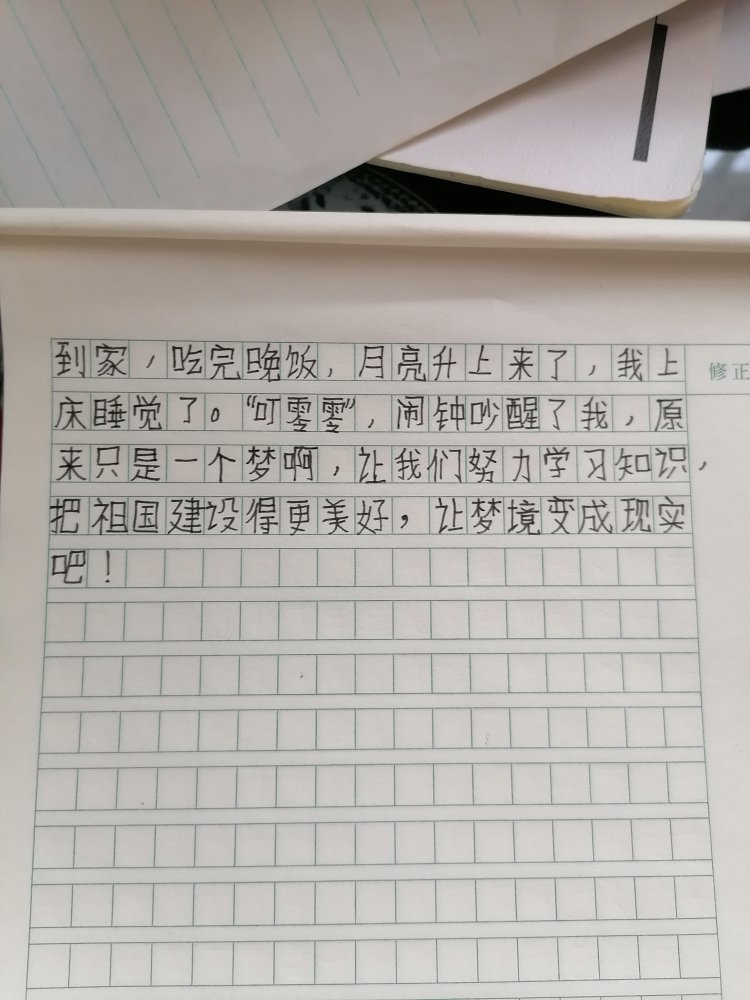 到家，吃完晚饭，月亮升上来了，我上
修正
床睡觉了。“叮零零”，闹钟吵醒了我，原
来只是一个梦啊，让我们努力学习知识，
把祖国建设得更美好，让梦境变成现实
吧！